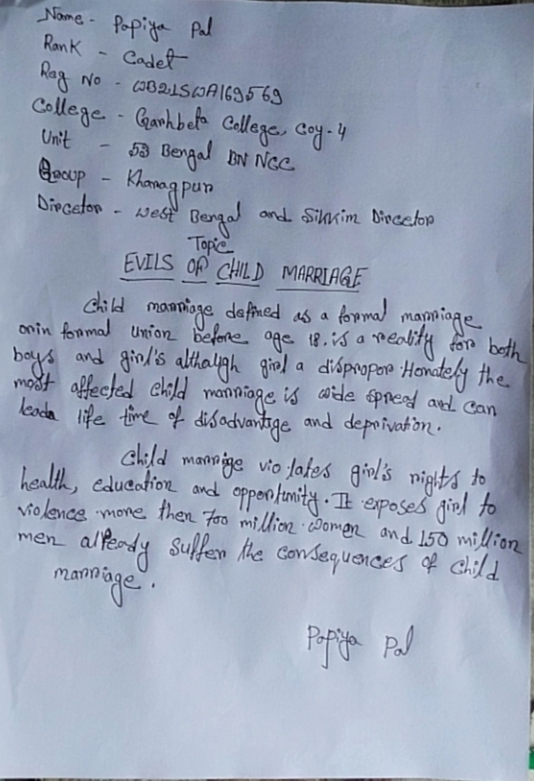 Name - Papiya Pal
Rank - Cadet
Reg No - WB21SWA169569
College - Garhbeta College, Coy - 4
Unit - 53 Bengal BN NCC
Group - Kharagpur
Dircetor - West Bengal and Sikkim Dircetor
Topic
EVILS OF CHILD MARRIAGE
Child marriage defined as a formal marriage
orin formal union before age 18. is a reality for both
boys and girl's althaugh girl a dispropor tionately the
most affected child marriage is wide spread and can
leada life time of disadvantage and deprivation.
Child marrige vio lates girl's rights to
health, education and opportunity. It exposes girl to
violence more then 700 million women and 150 million
men already suffer the consequences of child
marriage.
Papiya Pal